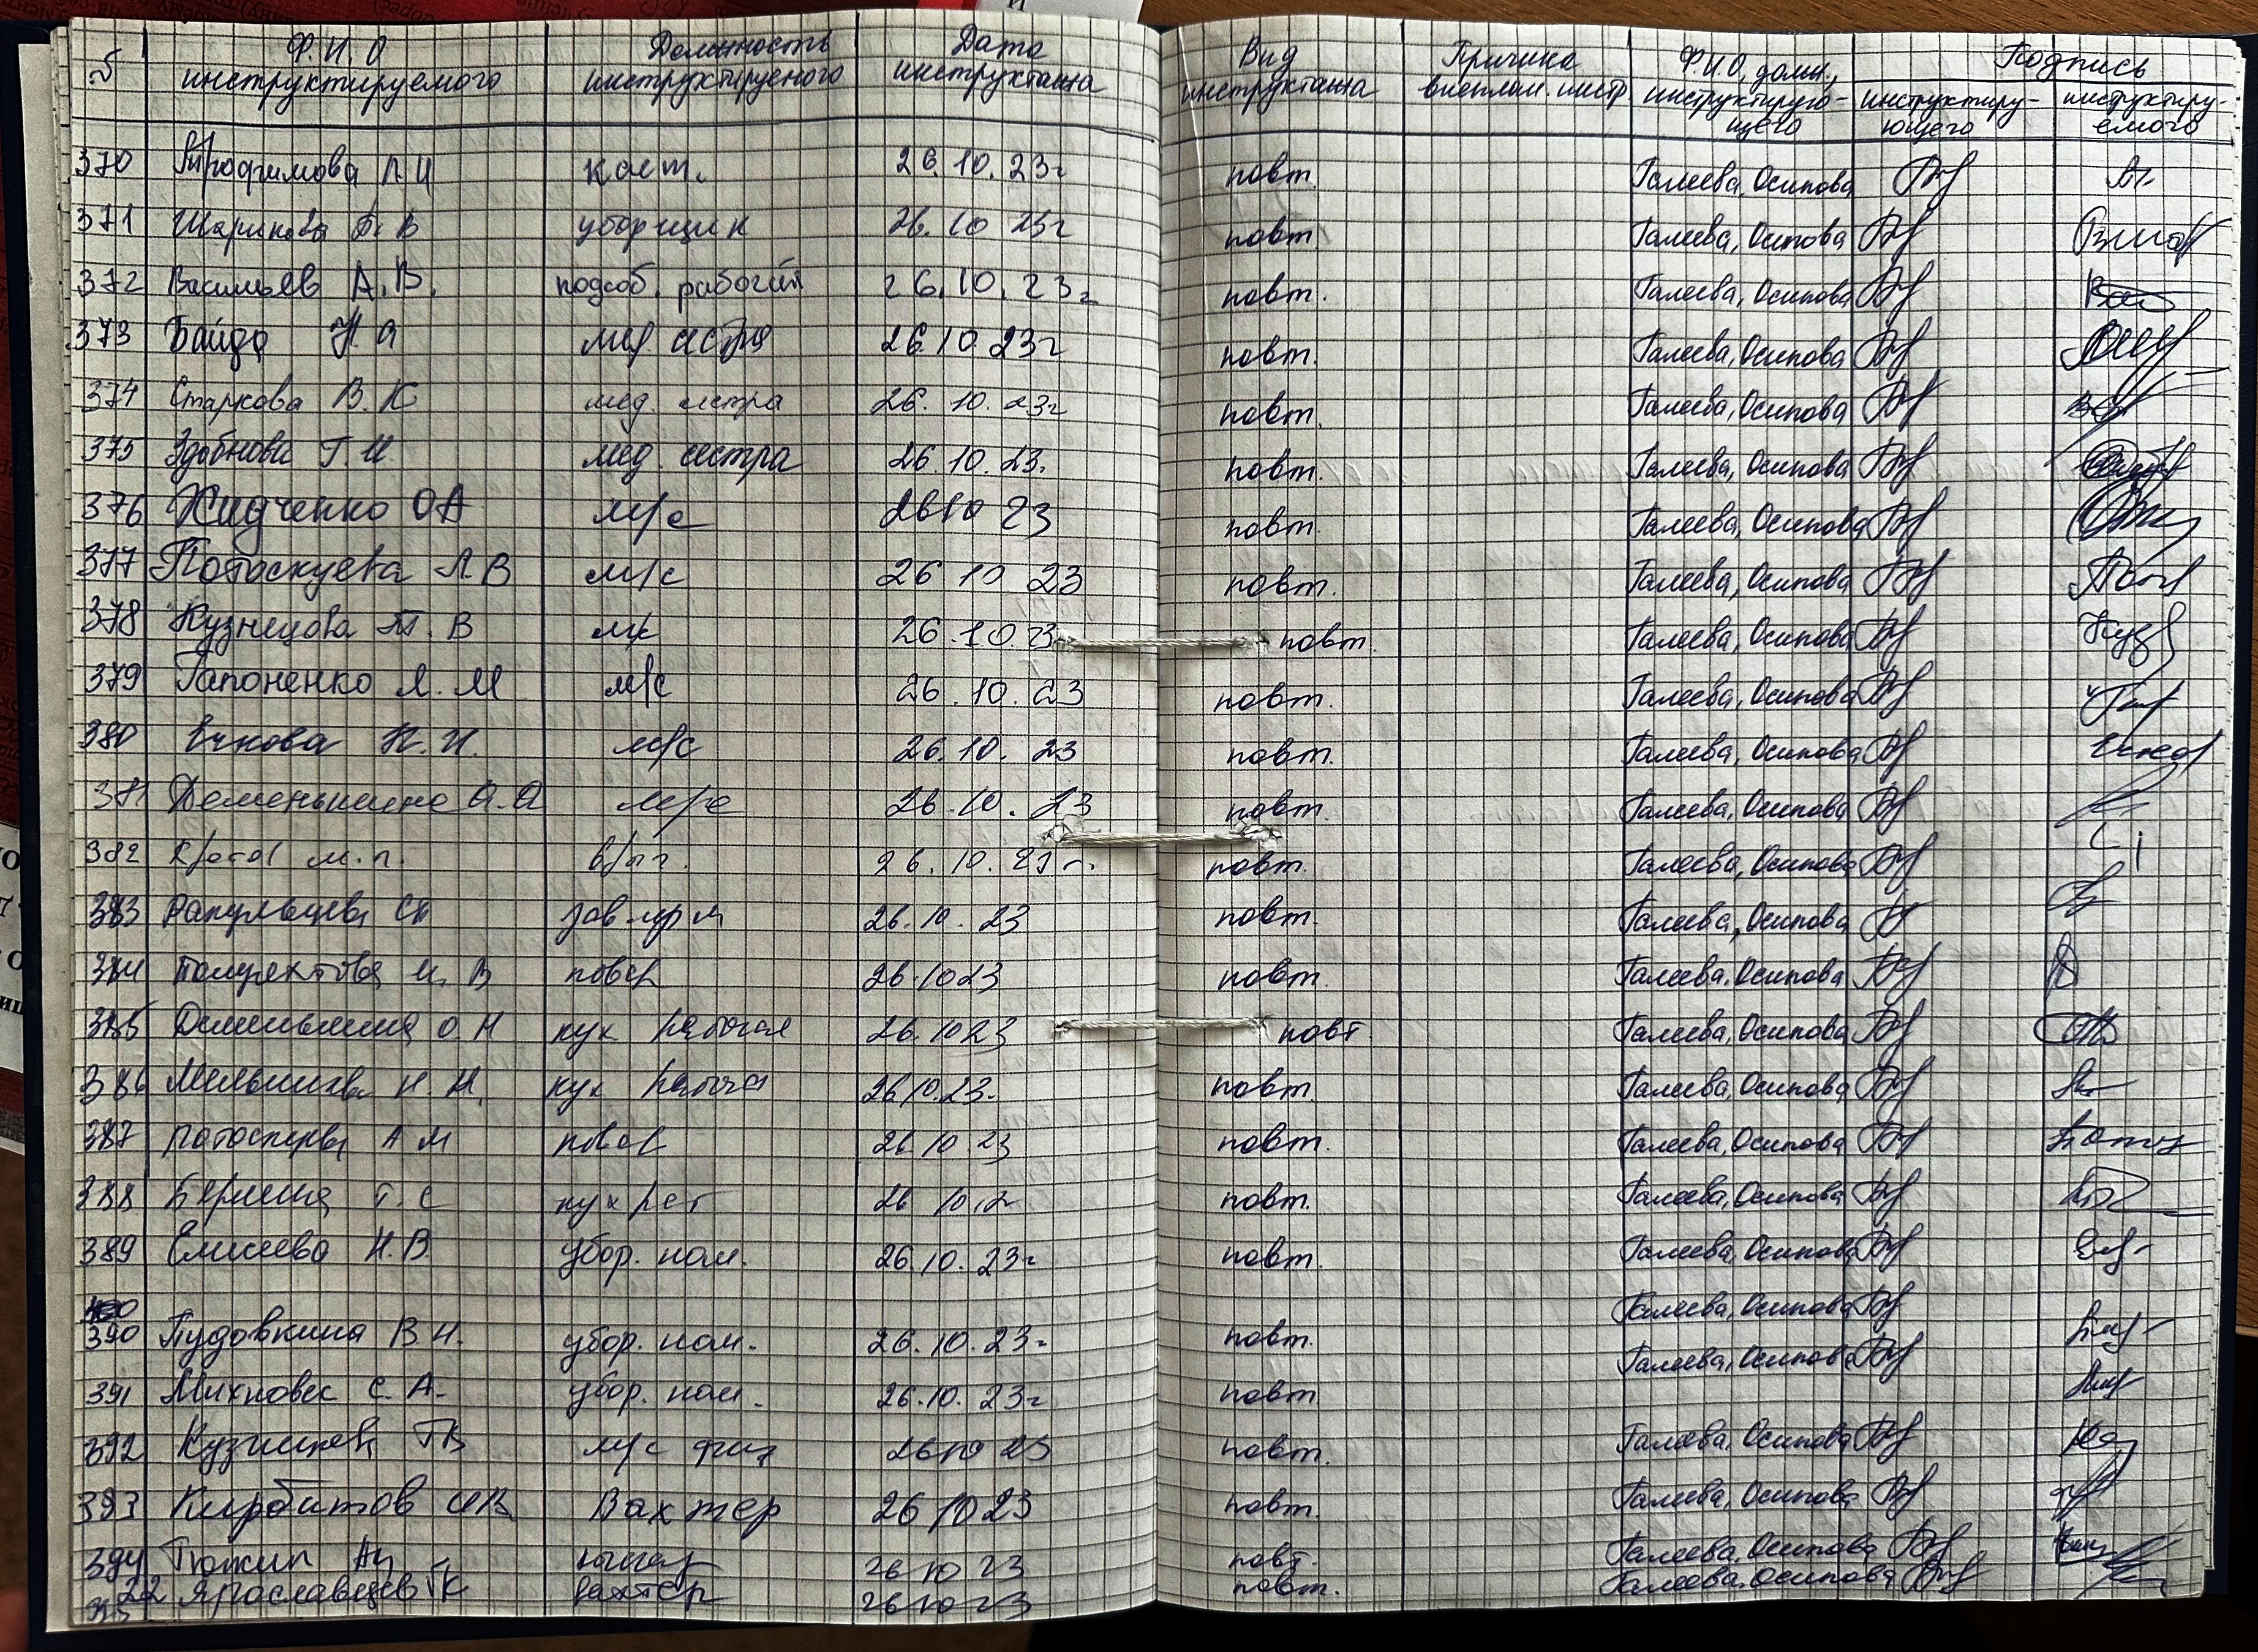 № Ф.И.О инструктируемого Должность инструктируемого Дата инструктажа Вид инструктажа Причина внеплан. инстр Ф.И.О, долж., инструктирующего Подпись инструктирующего инструктируемого
370 Трофимова Л И каст. 26.10.23г повт. Галеева, Осипова
371 Шарипова Т. В уборщик 26.10 23г повт Галеева, Осипова
372 Васильев А.В. подсоб. рабочий 26.10.23г повт. Галеева, Осипова
373 Байда Н а мед. сестра 26.10.23г повт. Галеева, Осипова
374 Старкова В. К мед. сестра 26.10.23г повт. Галеева, Осипова
375 Здобнова Г.И. мед. сестра 26.10.23. повт. Галеева, Осипова
376 Жидченко ОА м/с 26 10 23 повт. Галеева, Осипова
377 Потоскуева Л В м/с 26 10 23 повт. Галеева, Осипова Пот
378 Кузнецова Т. В м/с 26.10.23 повт. Галеева, Осипова Кузн
379 Гапоненко Л. М м/с 26.10.23 повт. Галеева, Осипова Гап
380 Ечкова Н.И. м/с 26.10.23 повт. Галеева, Осипова
381 Деменьшина О.А м/с 26.10.23 повт. Галеева, Осипова
382 м.п. 26.10.23г. повт. Галеева, Осипова
383 26.10.23 повт. Галеева, Осипова
384 Полуяктова И. В повар 26.10 23 повт. Галеева, Осипова
385 Деменьшина О. Н кух рабочая 26.10 23 повт Галеева, Осипова
386 Мельникова Н. Н. кух рабоча 26 10.23. повт. Галеева, Осипова
387 А М повар 26 10 23 повт. Галеева, Осипова
388 Т. С 26 10.2 повт. Галеева, Осипова
389 Елисеева Н.В. убор. пом. 26.10.23г повт. Галеева, Осипова
390 Пудовкина В Н. убор. пом. 26.10.23г повт. Галеева, Осипова
391 Михновес С. А. убор. пом. 26.10.23г повт. Галеева, Осипова
392 Кузнецова ТВ м/с физ 26 10 23 повт. Галеева, Осипова
393 Кирбитов Вахтер 26 10 23 повт. Галеева, Осипова
394 26 10 23 повт. Галеева, Осипова
395 22 Ярославцев ГК вахтер 26 10 23 повт. Галеева, Осипова